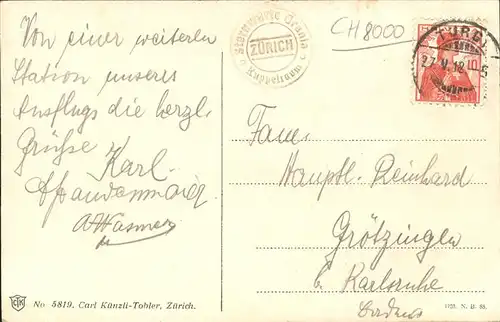 Von einer weiteren
Station unseres
Ausflugs die herzl.
Grüsse
Karl
A Wasmer
Sternwarte Urania
ZÜRICH
Kuppelraum
CH 8000
TURGI
27.V.18
10
Fam.
Hauptl. Reinhard
Grötzingen
b. Karlsruhe
Baden
No 5819. Carl Künzli-Tobler, Zürich.